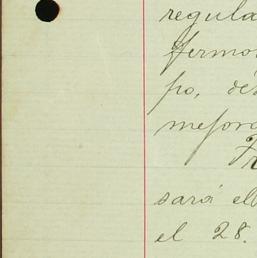 regula
fermo
po, de
mejora
Fr
sará el
el 28.